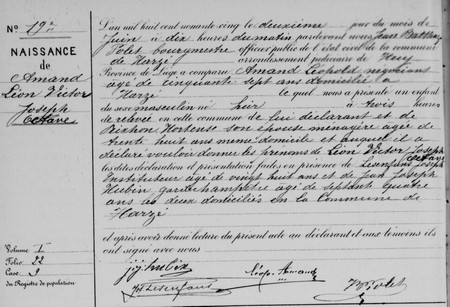 N° 19
NAISSANCE
de
Amand
Léon Victor
Joseph
Octave
Volume I
Folio 22
Case 3
du Registre de population
L'an mil huit cent nonante cinq le deuxième jour du mois de
Juin à dix heures du matin pardevant nous Jean
Polet bourgmestre officier public de l'état civil de la commune
de Harzé arrondissement judiciaire de Huy
Province de Liége a comparu Amand Léopold négociant
âgé de cinquante sept ans domicilié à
Harzé lequel nous a présenté un enfant
du sexe masculin né hier à trois heures
de relevée en cette commune de lui déclarant et de
Hortense son épouse ménagère âgée de
trente huit ans même domicile et auquel il a
déclaré vouloir donner les prénoms de Léon Victor Joseph
Octave
les dites déclaration et présentation faites en présence de Lesenfans Joseph
Instituteur âgé de vingt huit ans et de Jean Joseph
Hubin garde champêtre âgé de septante quatre
ans les deux domiciliés en la Commune de
Harzé
et après avoir donné lecture du présent acte au déclarant et aux témoins ils
ont signé avec nous
jj hubin
Léop. Amand
Jos Lesenfans
Polet